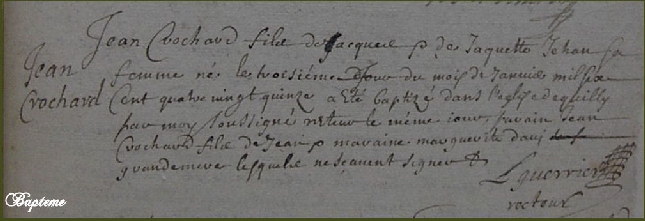 Jean Crochard filie de Jacque p de Jaquette Jehan sa
Jean
Crochard
femme né le troisième Jour du mois de Janvier mil six
Cent quatre vingt quinze a été baptizé dans l'eglise de quilly
par moy soussigné recteur le même iour, parain Jean
Crochard filie de Jean p maraine marguerite
grandemere lesquelle ne sçavent signer
Lguerrier
recteur
Bapteme